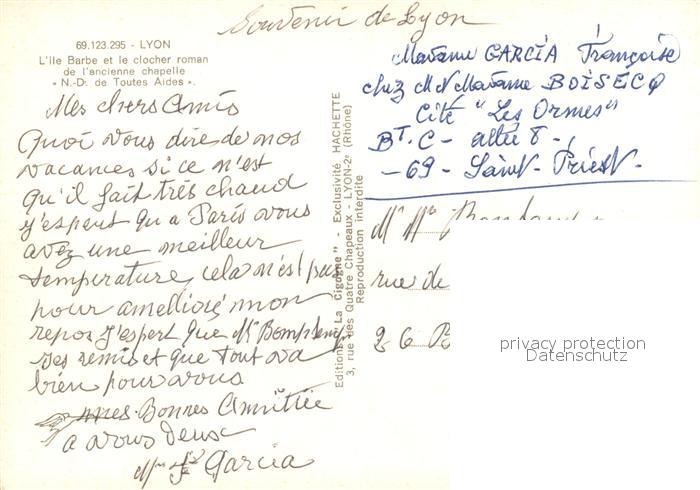 Souvenir de Lyon
69.123.295 - LYON
L'Ile Barbe et le clocher roman
de l'ancienne chapelle
« N.-D. de Toutes Aides ».
Mes chers Amis
Quoi vous dire de nos
vacances si ce n'est
qu'il fait très chaud
j'espert qu a Paris vous
avez une meilleur
temperature, cela n'est pas
pour amelioré mon
repos J'espert que Mr
ses remis et que tout va
bien pour vous
mes Bonnes Amitiée
a vous deux
Mme Fse Garcia
Editions " La Cigogne " - Exclusivité HACHETTE
3, rue des Quatre Chapeaux - LYON-2e (Rhône)
Reproduction interdite
Madame GARCIA Françoise
chez Mr Madame BOISECQ
Cité "Les Ormes"
BT. C - allée 8 -
- 69 - Saint-Priest -
Mr Mme
rue de
26
privacy protection
Datenschutz